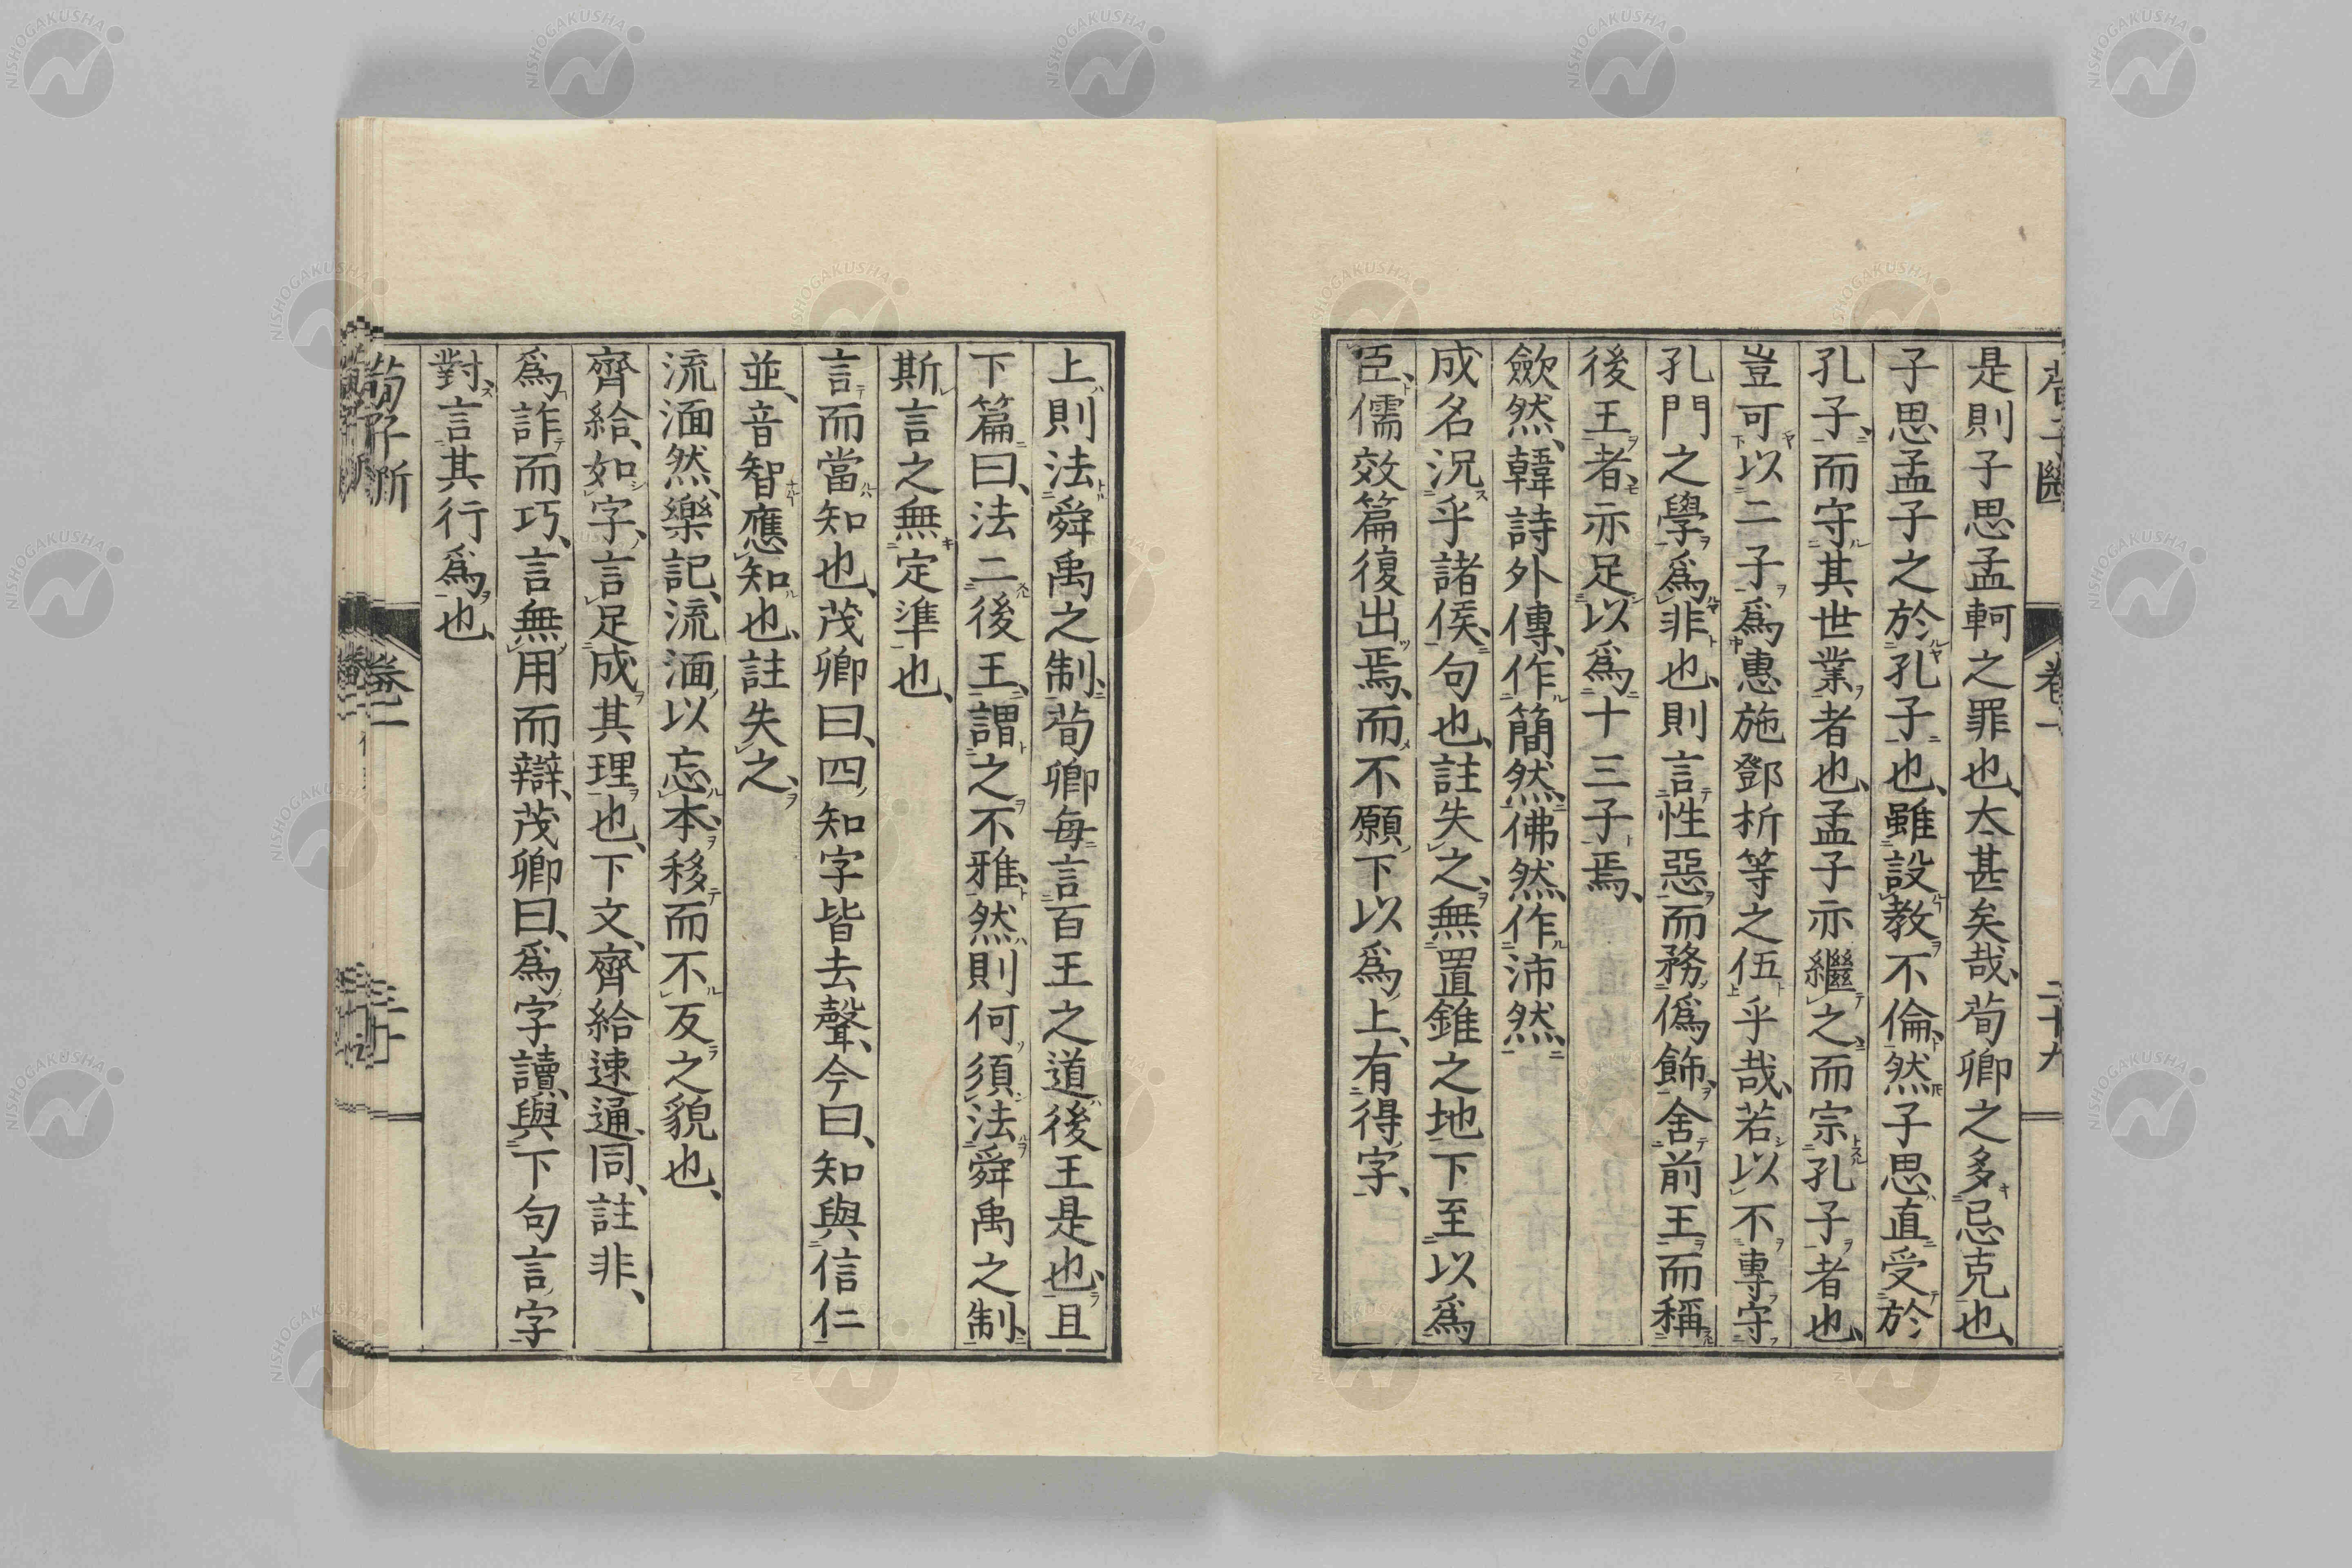 是則子思孟軻之罪也、大甚矣哉、荀卿之多忌克也、
子思孟子之於孔子也、雖設教不倫、然子思直受於
孔子、而守其世業者也、孟子亦繼之、而宗孔子者也、
豈可以二子爲惠施鄧析等之伍乎哉、若以不專守
孔門之學爲非也、則言性惡、而務僞飾、舍前王而稱
後王者、亦足以爲十三子焉、
歛然、韓詩外傳、作簡然、佛然、作沛然、
成名況乎諸侯、句也、註失之、無置錐之地下至以爲
臣、儒效篇復出焉、而不願下以爲上、有得字、
上則法舜禹之制、荀卿每言百王之道後王是也、且
下篇曰、法二後王、謂之不雅、然則何須法舜禹之制、
斯言之無定準也、
言而當知也、茂卿曰、四知字皆去聲、今曰、知與信仁
並、音智應知也、註失之、
流湎然、樂記、流湎以忘本、移而不反之貌也、
齊給、如字、言足成其理也、下文、齊給速通、同、註非、
爲詐而巧、言無用而辯、茂卿曰、爲字讀、與下句言字
對、言其行爲也、
荀子斷 卷二 三十
NISHOGAKUSHA